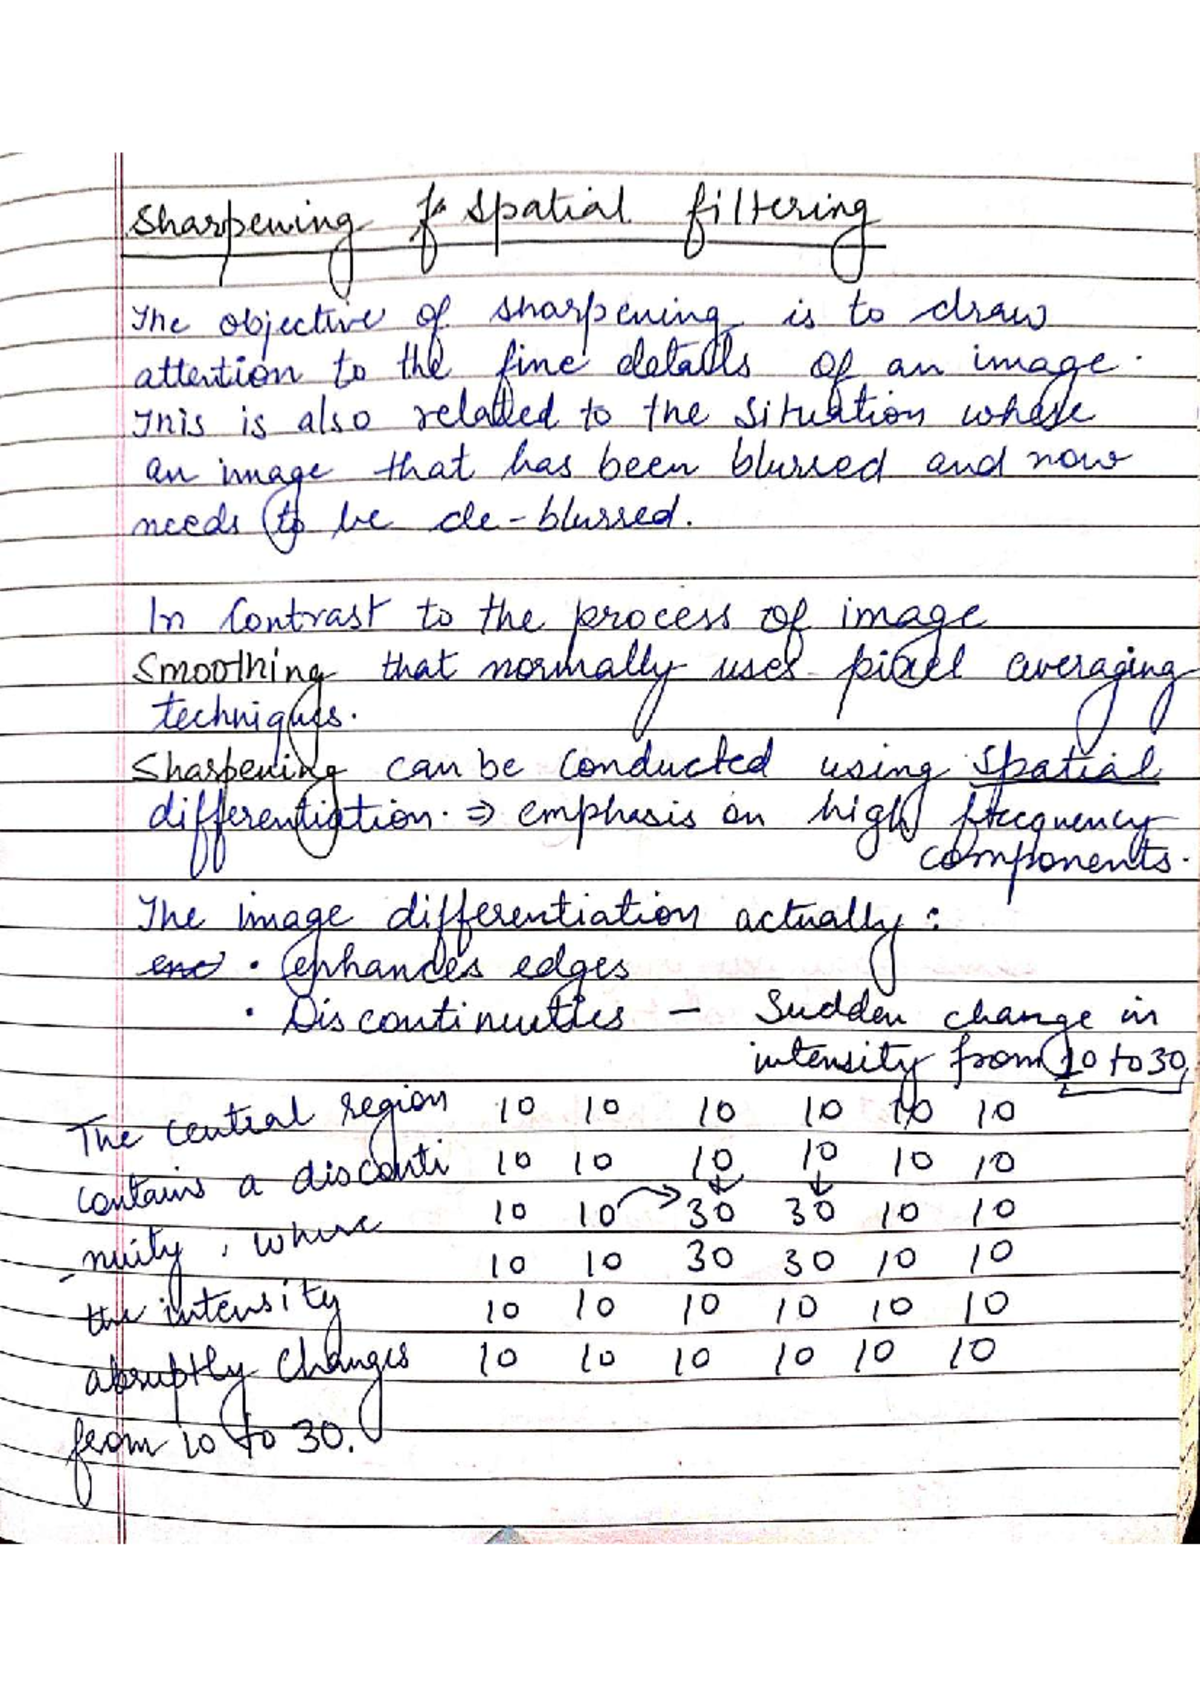 Sharpening & Spatial filtering
The objective of sharpening is to draw
attention to the fine details of an image.
This is also related to the situation where
an image that has been blurred and now
needs to be de-blurred.
In Contrast to the process of image
Smoothing that normally uses pixel averaging
techniques.
Sharpening can be conducted using spatial
differentiation. ⇒ emphasis on high frequency
components.
The image differentiation actually:
• enhances edges
• Discontinuities – Sudden change in
intensity from 10 to 30
The central region
contains a disconti
-nuity, where
the intensity
abruptly changes
from 10 to 30.
10 10 10 10 10 10
10 10 10 10 10 10
10 10 30 30 10 10
10 10 30 30 10 10
10 10 10 10 10 10
10 10 10 10 10 10